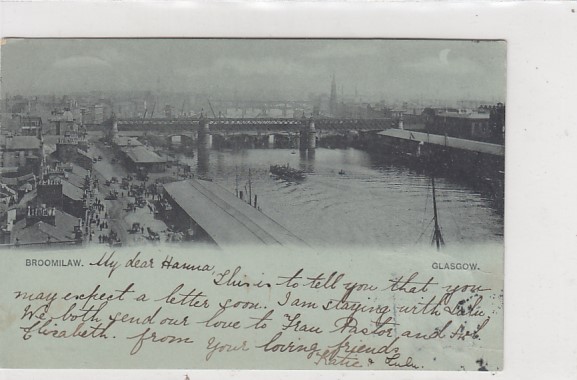 BROOMILAW.
GLASGOW.
My dear Hanna
This is to tell you that you
may expect a letter soon. I am staying with Lulu.
We both send our love to Frau Pastor and
Elizabeth. from Your loving friends,
Katie & Lulu.